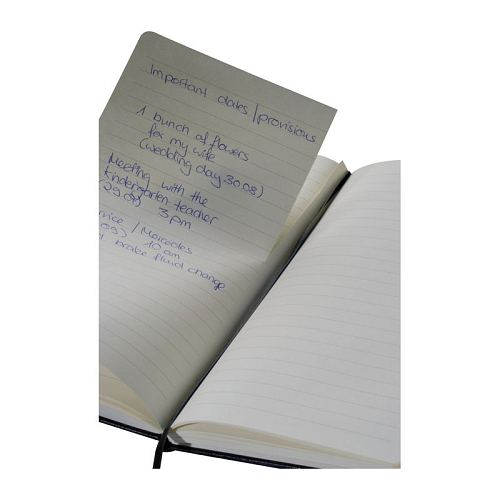 Important dates/provisions
1 bunch of flowers
for my wife
(wedding day 30.08)
Meeting with the
kindergarten-teacher
29.08) 3pm
/ Mercedes
10 am
brake fluid change